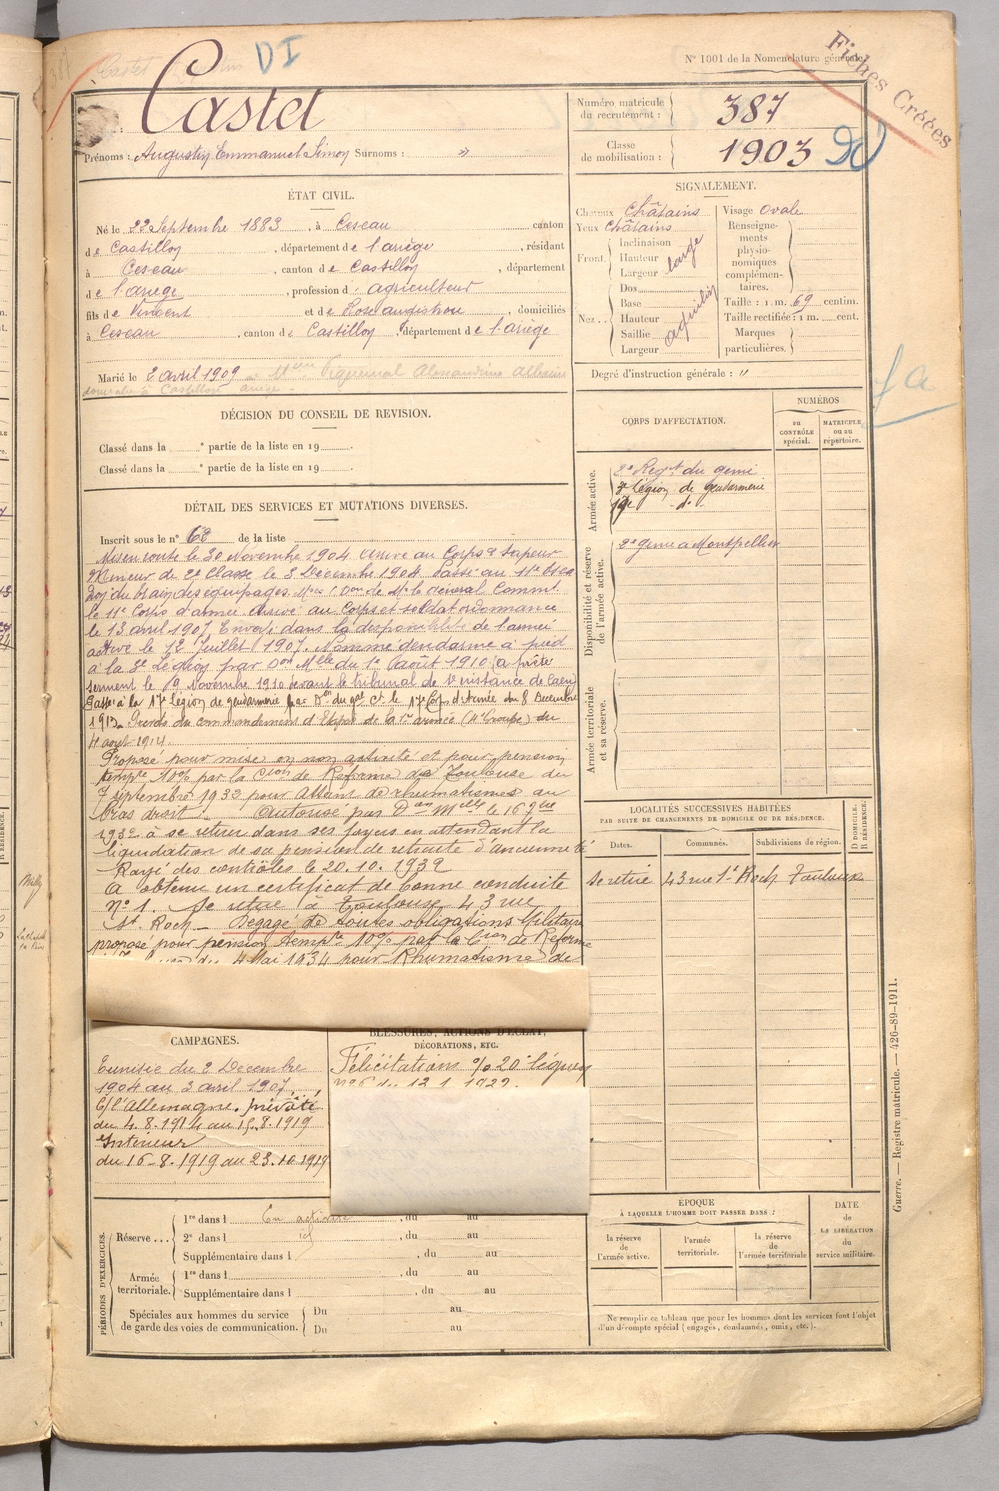 DI
N° 1001 de la Nomenclature générale
Fiches Créées
Castet
Numéro matricule du recrutement : 387
Classe de mobilisation : 1903
Prénoms : Augustin Emmanuel Simon Surnoms : »
ÉTAT CIVIL.
Né le 22 Septembre 1883, à Cescau canton
de Castillon, département de l'ariège, résidant
à Cescau, canton de Castillon, département
de l'ariège, profession d' agriculteur
fils de Vincent et de Rose, domiciliés
à Cescau, canton de Castillon, département de l'ariège
Marié le 2 avril 1909 Piquemal Alexandrine
SIGNALEMENT.
Cheveux Châtains
Yeux Châtains
Front. Inclinaison
Hauteur
Largeur large
Nez... Dos
Base
Hauteur
Saillie
Largeur
aquilin
Visage Ovale
Renseignements physionomiques complémentaires.
Taille : 1 m. 69 centim.
Taille rectifiée : 1 m. cent.
Marques particulières.
Degré d'instruction générale : "
DÉCISION DU CONSEIL DE REVISION.
Classé dans la e partie de la liste en 19 .
Classé dans la e partie de la liste en 19 .
DÉTAIL DES SERVICES ET MUTATIONS DIVERSES.
Inscrit sous le n° 62 de la liste
Mis en route le 30 Novembre 1904 arrivé au Corps & Sapeur
Mineur de 2e Classe le 2 Décembre 1904 Passé au 11e
du train des équipages le Général Comm.
le 11e Corps d'armée Arrivé au Corps et soldat ordonnance
le 13 avril 1907 Envoyé dans la disponibilité de l'armée
active le 12 Juillet 1907. Nommé gendarme à pied
à la 3e Légion par Don Mlle du 1er Août 1910 (a prêté
serment le 9 Novembre 1910 devant le tribunal de 1re instance de Caen
Passé à la 17e Légion de gendarmerie par Don du gal Ct le 17e Corps d'Armée du 8 Décembre
1913. Prévôté du commandement d'Etapes de la 1re armée (4e Groupe) du
4 août 1914.
Proposé pour mise en non activité et pour pension
tempre 10% par la Cion de Réforme de Toulouse du
7 septembre 1932 pour Atteint de rhumatismes au
bras droit. Autorisé par Don Mlle le 16
1932 à se retirer dans ses foyers en attendant la
liquidation de sa pension de retraite d'ancienneté
Rayé des contrôles le 20.10.1932
A obtenu un certificat de bonne conduite
N° 1. Se retire à Toulouse 43 rue
St. Roch. Dégagé de toutes obligations Militaires
proposé pour pension tempre 10% par la Cion de Réforme
du 4 Mai 1934 pour Rhumatisme de
CORPS D'AFFECTATION.
NUMÉROS
AU CONTRÔLE spécial.
MATRICULE ou au répertoire.
Armée active.
2e Regt du génie
3e Légion de gendarmerie
17e d°
Disponibilité et réserve de l'armée active.
2e génie à Montpellier
Armée territoriale et sa réserve.
LOCALITÉS SUCCESSIVES HABITÉES
PAR SUITE DE CHANGEMENTS DE DOMICILE OU DE RÉSIDENCE.
D DOMICILE. R RÉSIDENCE.
Dates.
Communes.
Subdivisions de région.
se retire 43 rue St Roch Toulouse
CAMPAGNES.
Tunisie du 2 Décembre
1904 au 3 avril 1907,
C/ l'Allemagne. prévôté
du 4.8.1914 au 15.8.1919
Intérieur
du 16-8.1919 au 23.10.1919
BLESSURES, ACTIONS D'ÉCLAT,
DÉCORATIONS, ETC.
Félicitations 20e légion
n° 6 du 12.1.1929.
PÉRIODES D'EXERCICES.
Réserve... 1re dans l En activité, du au
2e dans l id, du au
Supplémentaire dans l , du au
Armée territoriale. 1re dans l , du au
Supplémentaire dans l , du au
Spéciales aux hommes du service de garde des voies de communication. Du au
Du au
ÉPOQUE
À LAQUELLE L'HOMME DOIT PASSER DANS :
la réserve de l'armée active.
l'armée territoriale.
la réserve de l'armée territoriale
DATE de LA LIBÉRATION du service militaire.
Ne remplir ce tableau que pour les hommes dont les services font l'objet
d'un décompte spécial (engagés, condamnés, omis, etc.).
Guerre. — Registre matricule. — 426-89-1911.